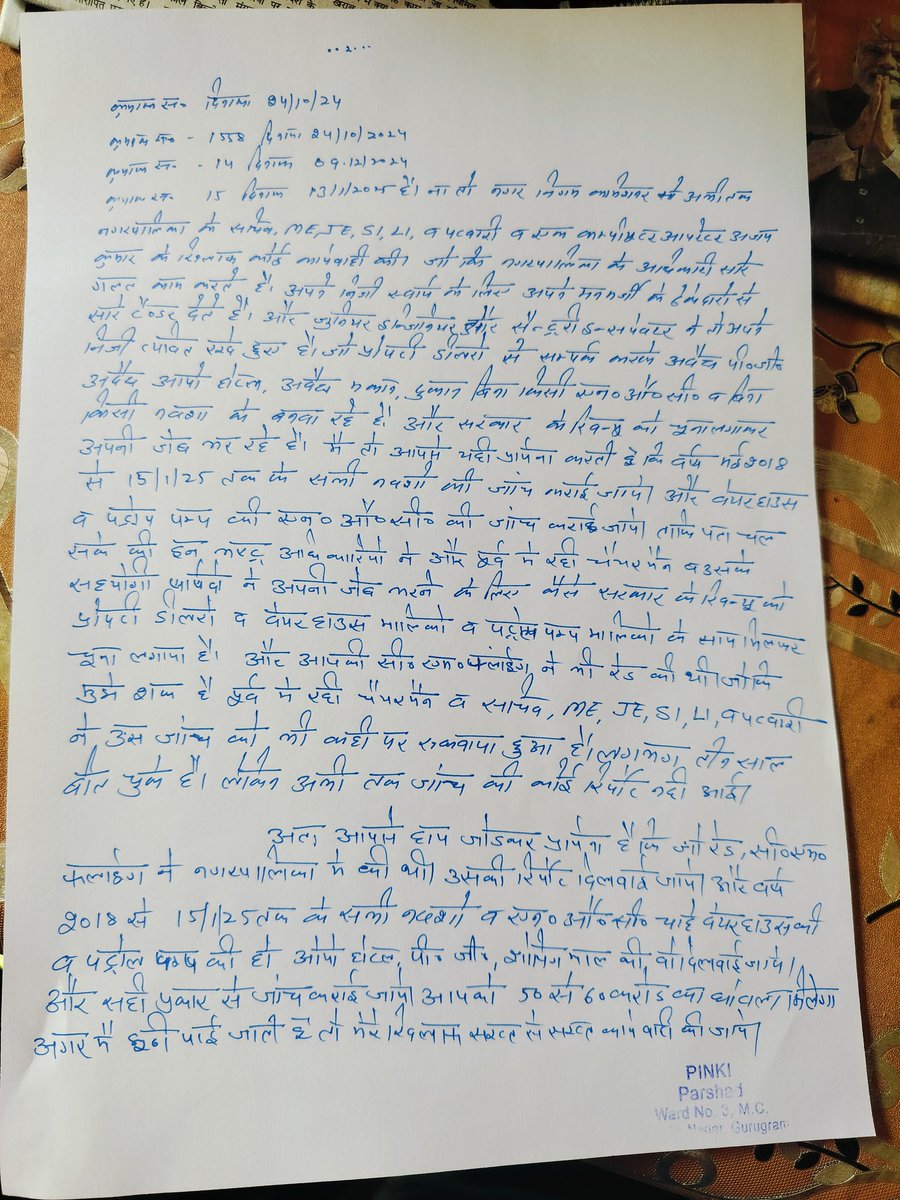 ..2...
क्रमांक स० दिनांक 24/10/24
क्रमांक स० - 1558 दिनांक 24/10/2024
क्रमांक स० - 14 दिनांक 09.12/2024
क्रमांक स० 15 दिनांक 13/1/2025 है। ना तो नगर निगम से अभी तक
नगरपालिका के सचिव, ME, JE, SI, LI, व पटवारी व एक कम्पीयूटर आपरेटर अजय
कुमार के खिलाफ कोई कार्यवाही की जो कि नगरपालिका के अधिकारी सारे
गलत काम करते है। अपने निजी स्वार्थ के लिए अपने मनमर्जी के ठेकेदारो से
सारे टैण्डर देते है। और जूनियर इन्जीनियर और सैन्ट्री इन्सपेक्टर ने तो अपने
निजी व्यक्ति रखे हुए है। जो प्रोपर्टी डीलरो से सम्पर्क करके अवैध पी०जी०
अवैध आयो होटल, अवैध मकान, दुकान बिना किसी एन०ओ०सी० व बिना
किसी नक्शा के बनवा रहे है। और सरकार के रिवन्यू को चूना लगाकर
अपनी जेब भर रहे है। मै तो आपसे यही प्रार्थना करती हूँ कि वर्ष मई 2018
से 15/1/25 तक के सभी नक्शो की जांच कराई जाये। और वेयरहाउस
व पेट्रोल पम्प की एन० ओ०सी० की जांच कराई जाये। ताकि पता चल
सके की इन भ्रष्ट अधिकारियो ने और पूर्व मे रही चेयरमैन व उसके
सहयोगी पार्षदो ने अपनी जेब भरने के लिए कैसे सरकार के रिवन्यू को
प्रोपर्टी डीलरो व वेयरहाउस मालिको व पेट्रोल पम्प मालिको के साथ मिलकर
चूना लगाया है। और आपकी सी० एम० फ्लाइंग ने भी रेड की थी। जोकि
मुझे शक है पूर्व मे रही चेयरमैन व सचिव, ME, JE, SI, LI, व पटवारी
ने उस जांच को भी कही पर रुकवाया हुआ है। लगभग तीन साल
बीत चुके है। लेकिन अभी तक जांच की कोई रिर्पोट नही आई।
अतः आपसे हाथ जोडकर प्रार्थना है कि जो रेड, सी०एम०
फलाइंग ने नगरपालिका मे की थी। उसकी रिर्पोट दिलवाई जाये। और वर्ष
2018 से 15/1/25 तक के सभी नक्शो व एन० ओ०सी० चाहे वेयरहाउस की
व पेट्रोल पम्प की हो ओयो होटल, पी० जी०, शोपिंग माल की, वो दिलवाई जाये।
और सही प्रकार से जांच कराई जाये। आपको 50 से 60 करोड का घोटाला मिलेगा
अगर मै झूठी पाई जाती हूँ तो मेरे खिलाफ सख्त से सख्त कार्यवाही की जाये।
PINKI
Parshad
Ward No. 3, M.C.
Nagar, Gurugram